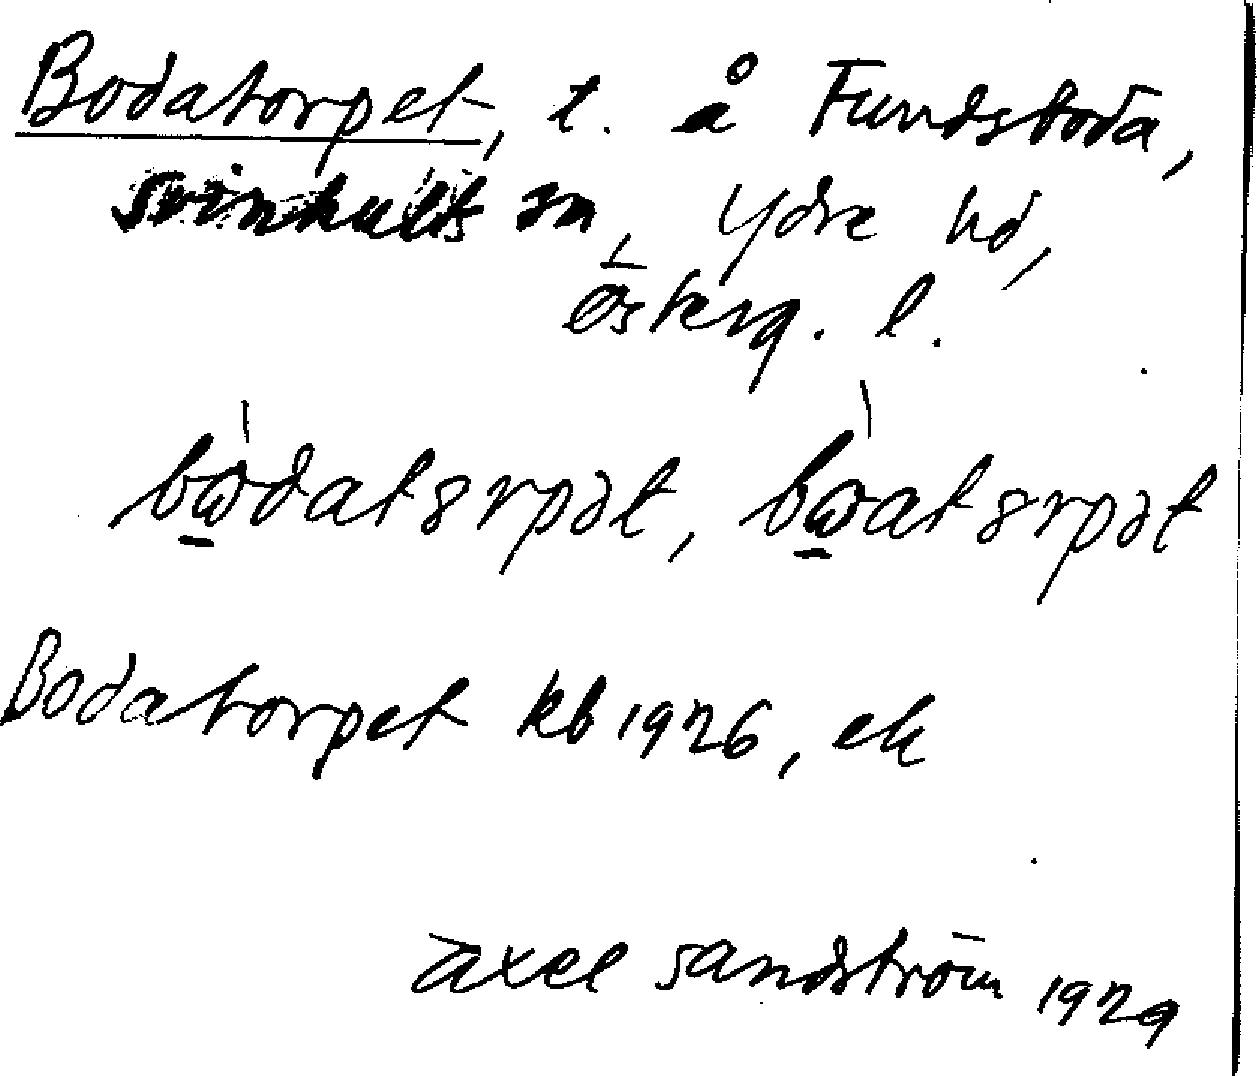 Bodatorpet, t. å Fundsboda,
Svinhults sn, Ydre hd,
Österg. l.
bѡ̀datȣrpət, bѡ̀atȣrpət
Bodatorpet kb 1926, ek
Axel Sandström 1929